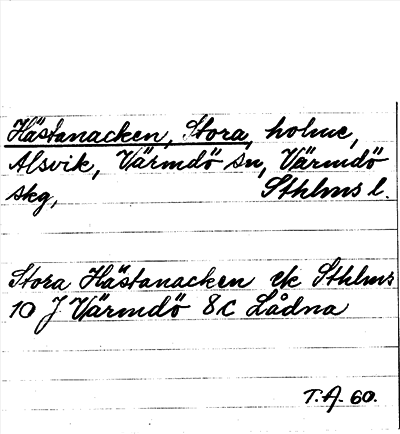 Hästanacken, Stora, holme,
Alsvik, Värmdö sn, Värmdö
skg, Sthlms l.
Stora Hästanacken ek Sthlms
10 J Värmdö 8c Lådna
T.A. 60.